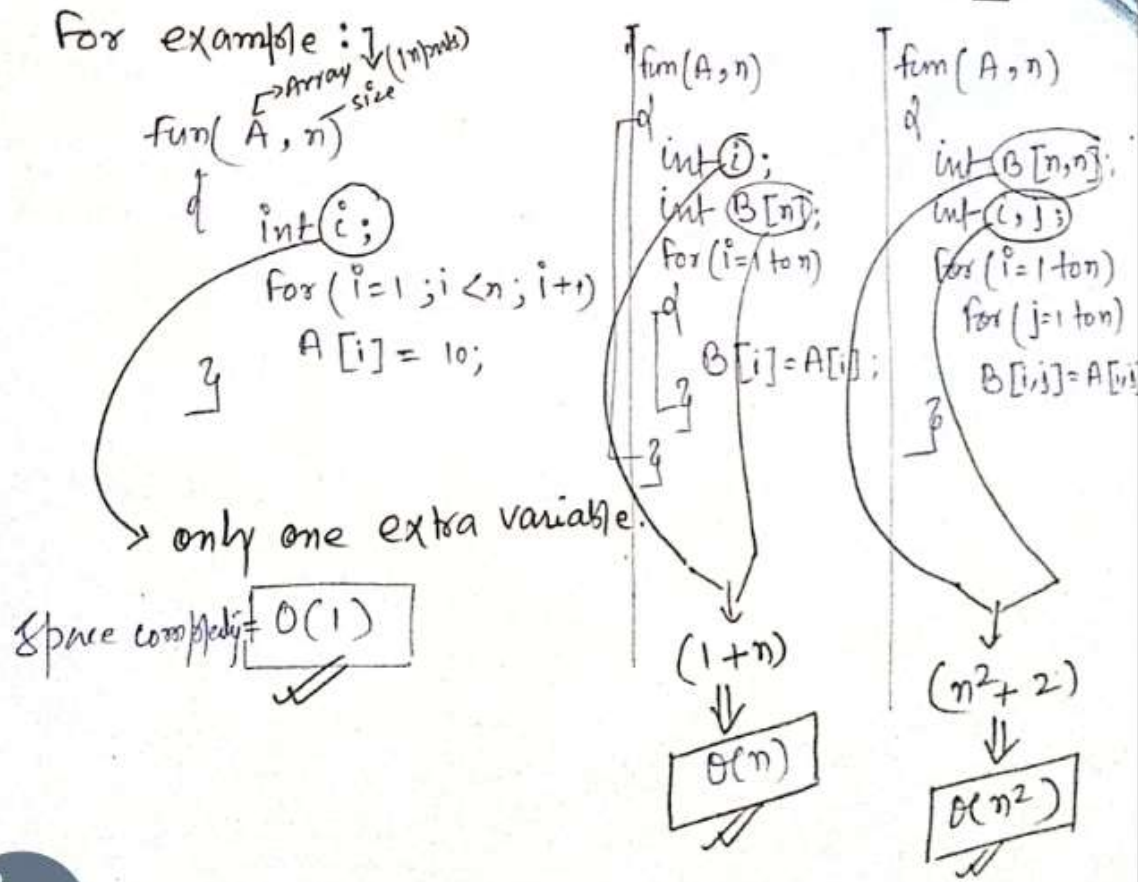 For example :
Array (Inputs)
size
fun( A, n)
{
int i;
for( i=1 ; i <n; i++)
A [i] = 10;
}
only one extra variable.
Space complexity = O(1)
fun(A, n)
{
int i;
int B[n];
for (i=1 to n)
{
B[i]=A[i];
}
}
(1+n)
⇓
O(n)
fun( A, n)
{
int B[n,n];
int i, j;
for (i=1 to n)
for (j=1 to n)
B[i,j]=A[i,j]
}
(n²+ 2)
⇓
O(n²)